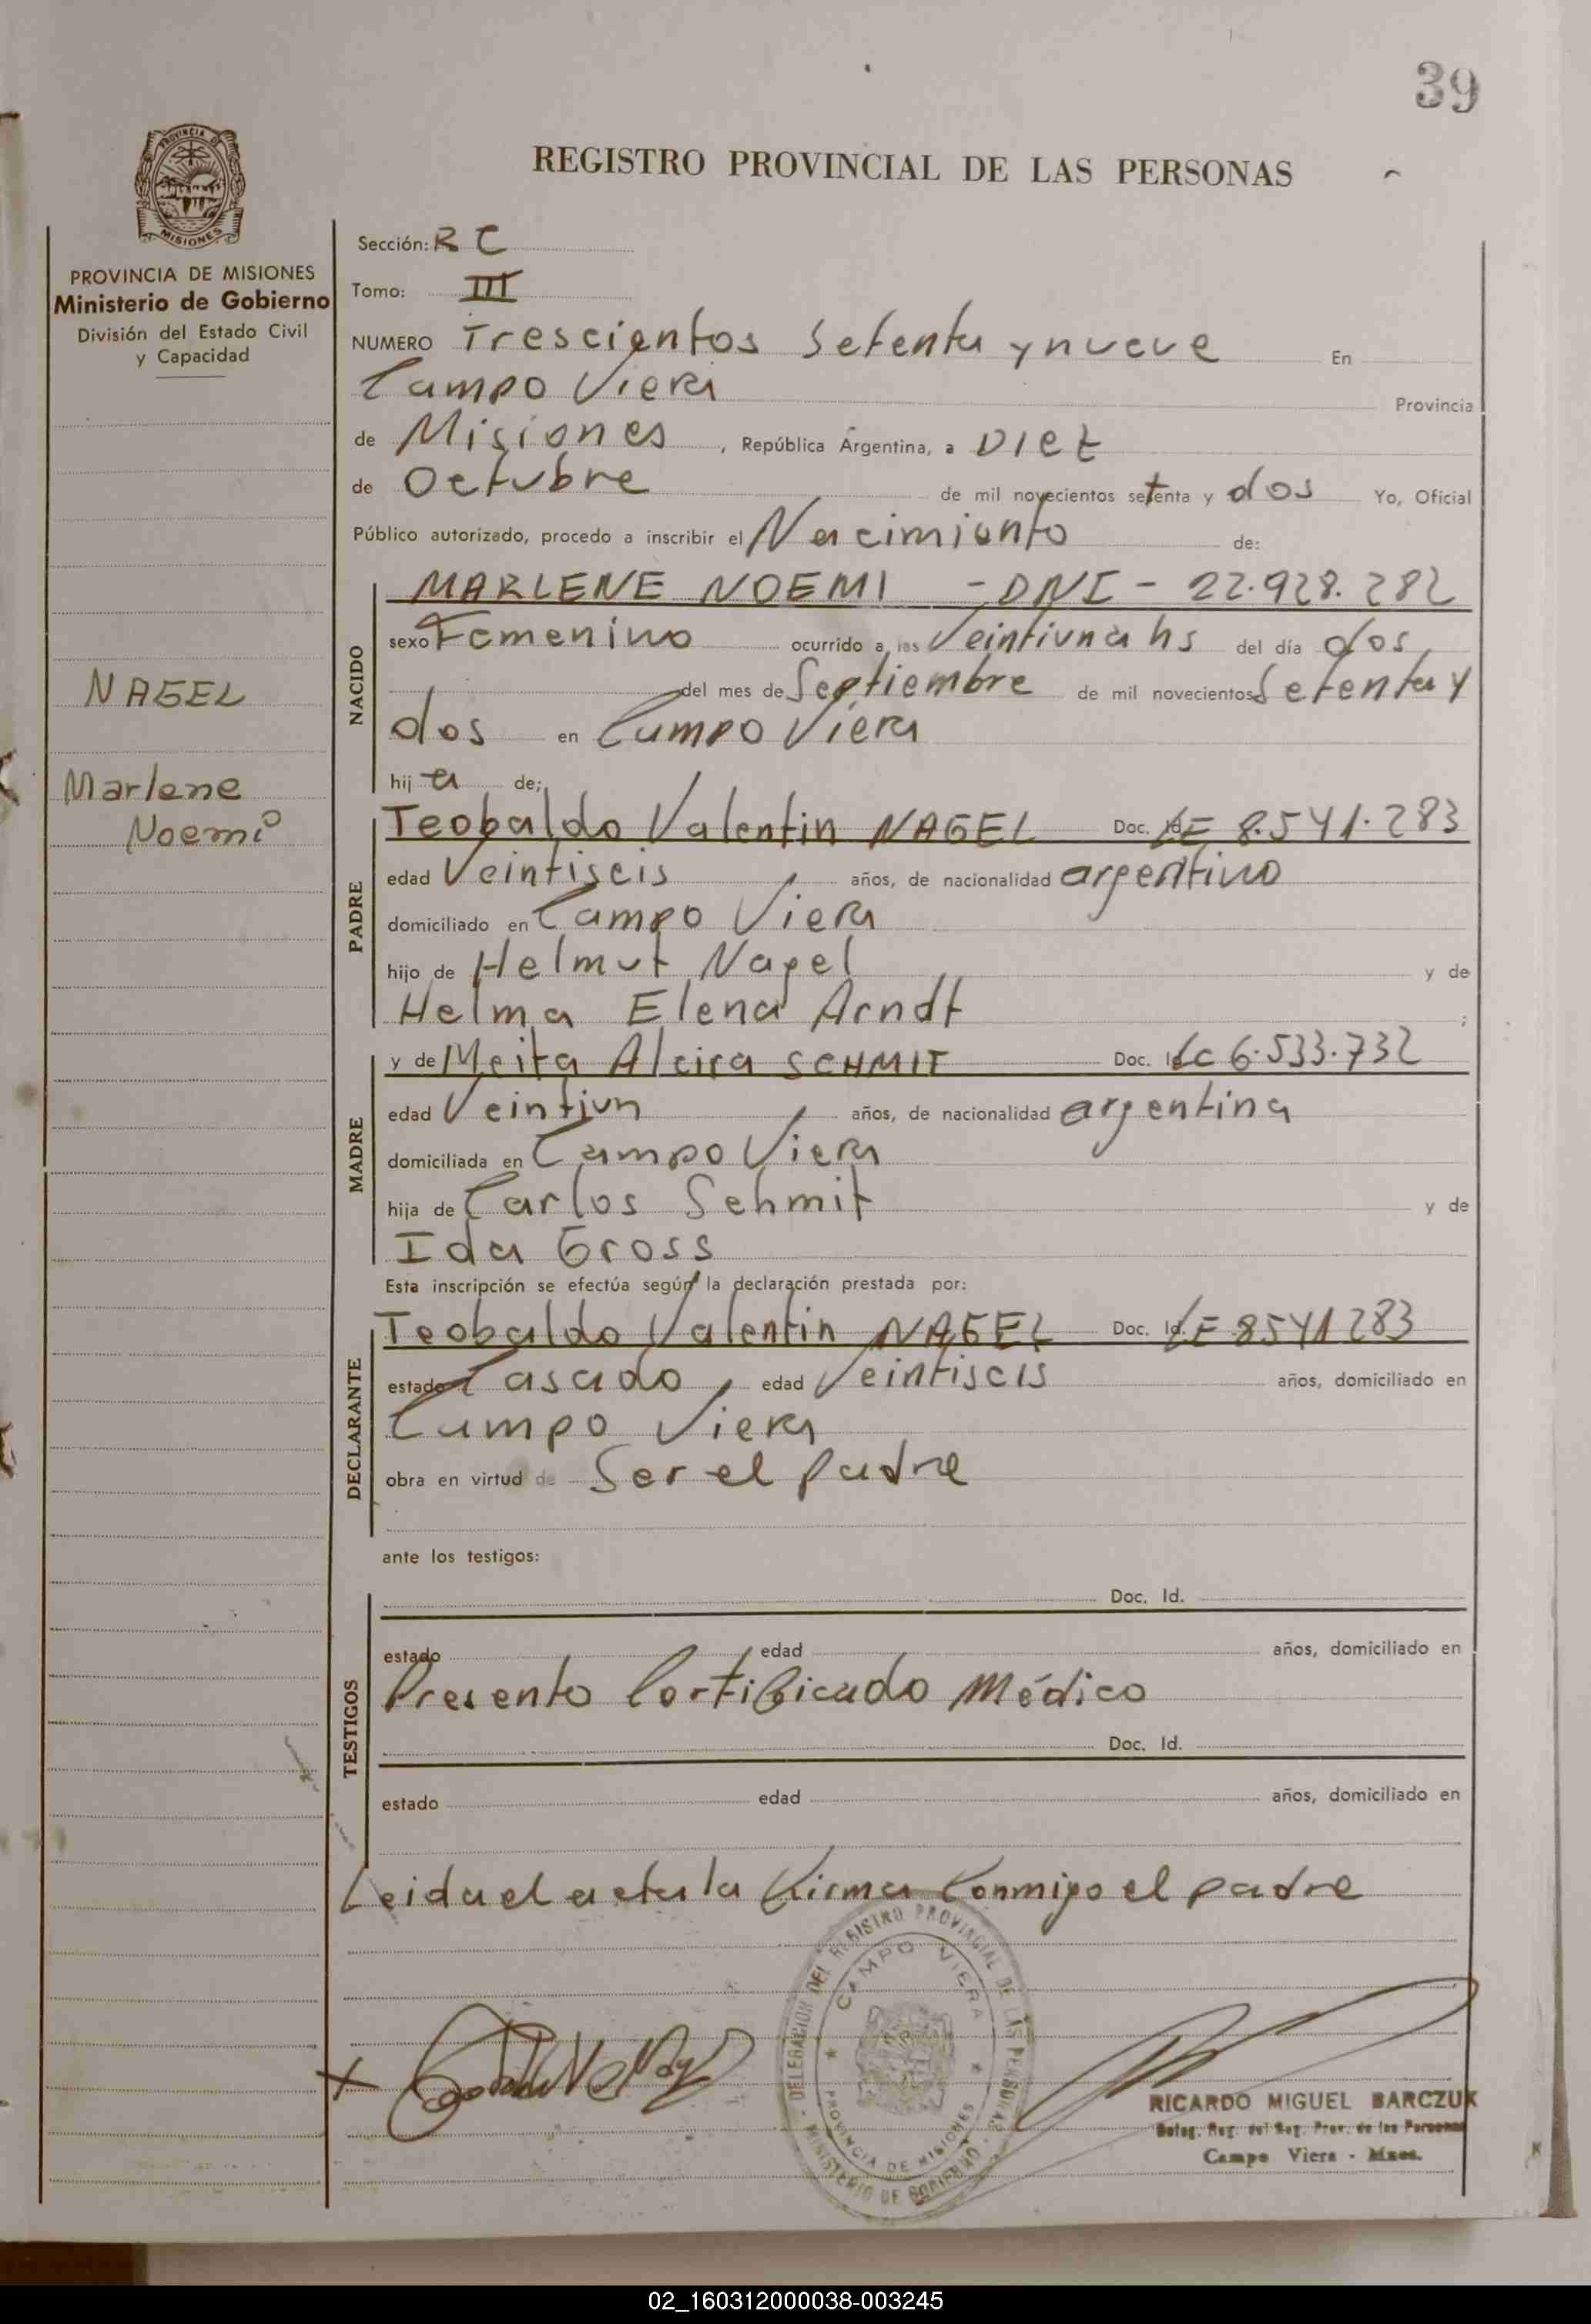 39
REGISTRO PROVINCIAL DE LAS PERSONAS
PROVINCIA DE MISIONES
Ministerio de Gobierno
División del Estado Civil
y Capacidad
NAGEL
Marlene
Noemi
Sección: R C
Tomo: III
NUMERO Trescientos Setenta y nueve En
Campo Viera Provincia
de Misiones, República Argentina, a Diez
de Octubre de mil novecientos setenta y dos Yo, Oficial
Público autorizado, procedo a inscribir el Nacimiento de:
NACIDO
MARLENE NOEMI - DNI - 22.928.282
sexo Femenino ocurrido a las Veintiuna hs del día dos
del mes de Septiembre de mil novecientos Setenta y
dos en Campo Viera
hij a de;
PADRE
Teobaldo Valentin NAGEL Doc. Id. LE 8.541.283
edad Veintiseis años, de nacionalidad argentino
domiciliado en Campo Viera
hijo de Helmut Nagel y de
Helma Elena Arndt ;
MADRE
y de Meita Alcira SCHMIT Doc. Id. LC 6.533.732
edad Veintiun años, de nacionalidad argentina
domiciliada en Campo Viera
hija de Carlos Schmit y de
Ida Gross
Esta inscripción se efectúa según la declaración prestada por:
DECLARANTE
Teobaldo Valentin NAGEL Doc. Id. LE 8541283
estado Casado, edad Veintiseis años, domiciliado en
Campo Viera
obra en virtud de Ser el padre
ante los testigos:
TESTIGOS
Doc. Id.
estado edad años, domiciliado en
Presento Certificado Médico
Doc. Id.
estado edad años, domiciliado en
Leida el acta la firma conmigo el padre
DELEGACION DEL REGISTRO PROVINCIAL DE LAS PERSONAS
CAMPO VIERA
PROVINCIA DE MISIONES
MINISTERIO DE GOBIERNO
RICARDO MIGUEL BARCZUK
Deleg. Reg. del Reg. Prov. de las Personas
Campo Viera - Mnes.
02_160312000038-003245